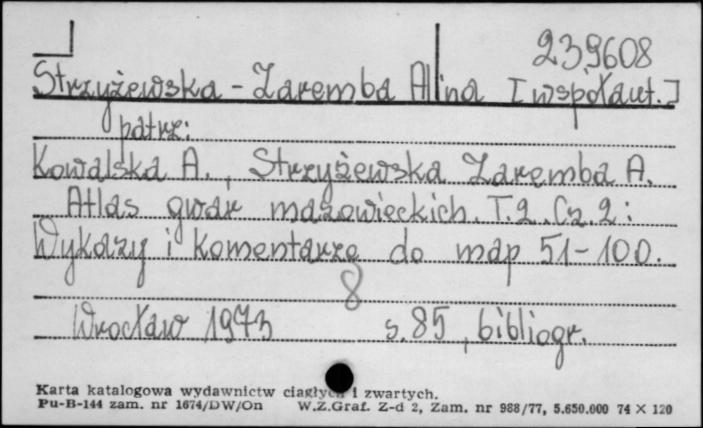 239608
Strzyżewska - Zaremba Alina [współaut.]
patrz:
Kowalska A., Strzyżewska Zaremba A.
Atlas gwar mazowieckich. T.2. Cz. 2:
Wykazy i komentarze do map 51-100.
8
Wrocław 1973 s. 85, bibliogr.
Karta katalogowa wydawnictw ciągłych i zwartych.
Pu-B-144 zam. nr 1674/DW/On W.Z.Graf. Z-d 2, Zam. nr 988/77, 5.650.000 74 X 120